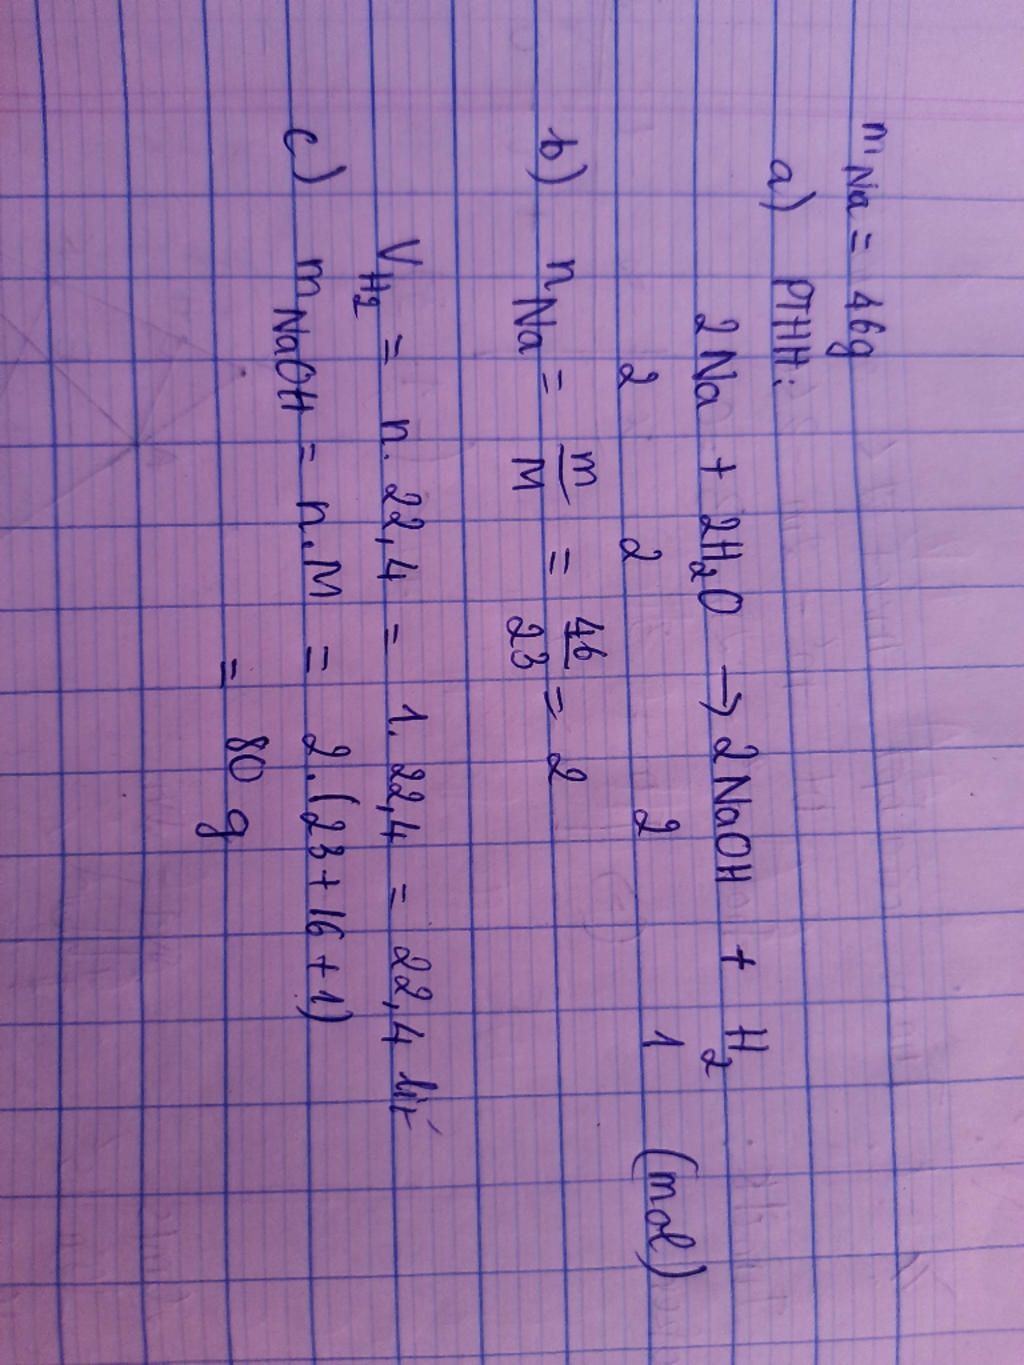 mNa = 46g
a) PTHH:
2Na + 2H₂O → 2NaOH + H₂
2 2 2 1 (mol)
b) nNa = m/M = 46/23 = 2
VH₂ = n. 22,4 = 1. 22,4 = 22,4 lít
c) mNaOH = n.M = 2.(23+16+1)
= 80 g